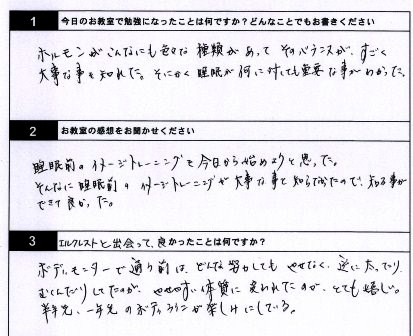 1 今日のお教室で勉強になったことは何ですか？どんなことでもお書きください
ホルモンがこんなにも色々な種類があって そのバランスが、すごく
大事な事を知れた。とにかく睡眠が何に対しても重要な事がわかった。
2 お教室の感想をお聞かせください
睡眠前のイメージトレーニングを今日から始めようと思った。
そんなに睡眠前のイメージトレーニングが大事な事て知らなかたので、知る事が
できて良かった。
3 エルクレストと出会って、良かったことは何ですか？
ボディモニターで通う前は、どんな努力しても やせなく、逆に太ったり
むくんだりしてたのが、やせやすい体質に変われたので、とても嬉しい。
半年先、一年先のボディラインが楽しみにしている。